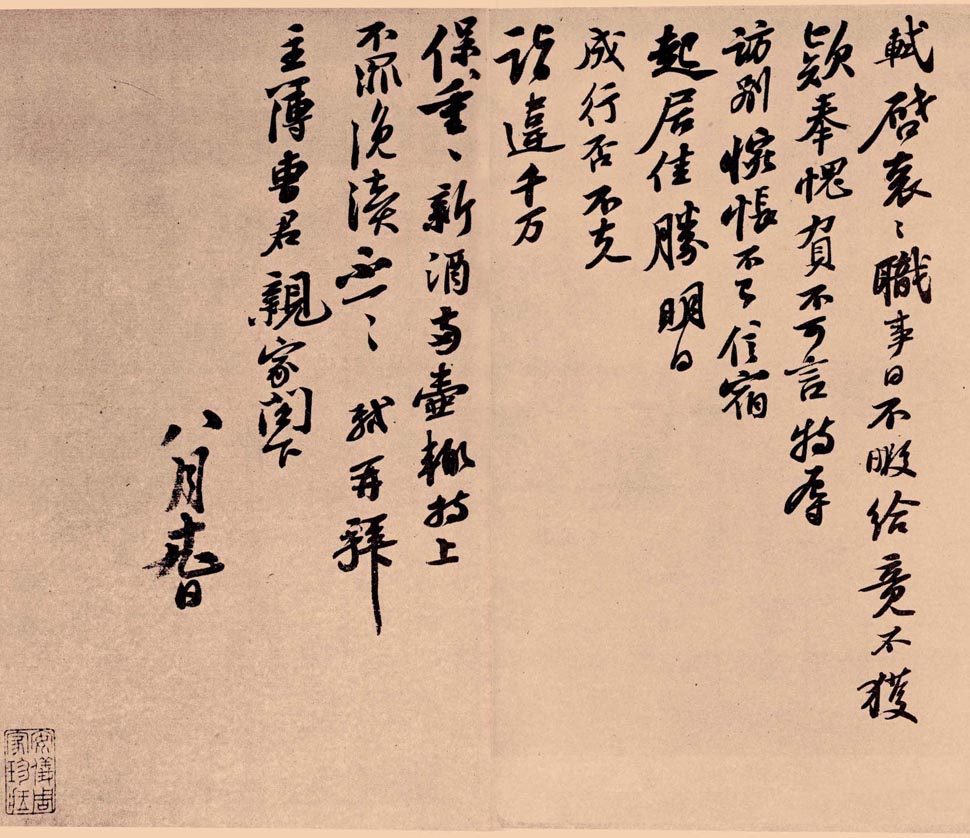 軾啓衮〻職事日不暇給竟不獲
欵奉愧負不可言特辱
訪別惋悵不已信宿
起居佳勝明日
成行否不克
詣違千万
保重〻新酒兩壺輒持上
不罪浼瀆不一〻 軾再拜
主簿曹君親家閤下
八月日
安儀周家珍藏